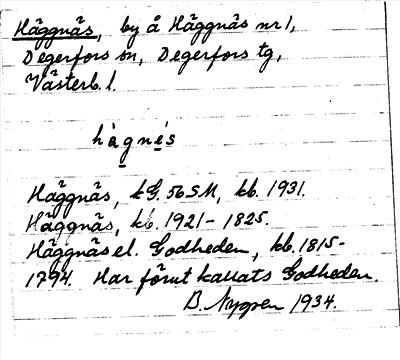 Häggnäs, by å Häggnäs nr 1,
Degerfors sn, Degerfors tg,
Västerb. l.
hàgnés
Häggnäs, kG. 56 SM, kb. 1931.
Häggnäs, kb. 1921-1825.
Häggnäs el. Godheden, kb. 1815-
1794. Har förut kallats Godheden.
B. Nygren 1934.